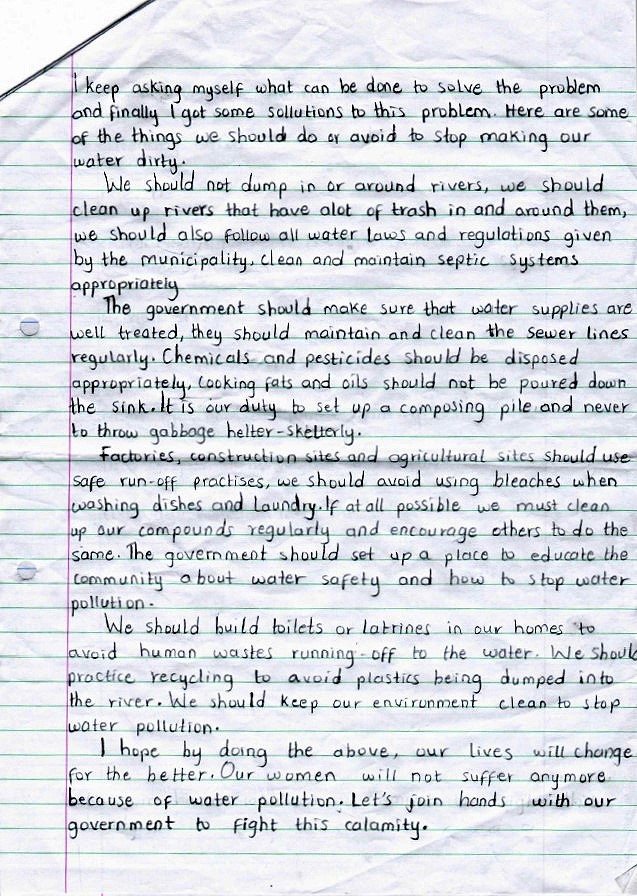 I keep asking myself what can be done to solve the problem
and finally I got some sollutions to this problem. Here are some
of the things we should do or avoid to stop making our
water dirty.
We should not dump in or around rivers, we should
clean up rivers that have alot of trash in and around them,
we should also follow all water laws and regulations given
by the municipality, clean and maintain septic systems
appropriately
The government should make sure that water supplies are
well treated, they should maintain and clean the sewer lines
regularly. Chemicals and pesticides should be disposed
appropriately, Cooking fats and oils should not be poured down
the sink. It is our duty to set up a composing pile and never
to throw gabbage helter-skelterly.
Factories, construction sites and agricultural sites should use
safe run-off practises, we should avoid using bleaches when
washing dishes and laundry. If at all possible we must clean
up our compounds regularly and encourage others to do the
same. The government should set up a place to educate the
community about water safety and how to stop water
pollution.
We should build toilets or latrines in our homes to
avoid human wastes running-off to the water. We shoul
practice recycling to avoid plastics being dumped into
the river. We should keep our environment clean to stop
water pollution.
I hope by doing the above, our lives will change
for the better. Our women will not suffer anymore
because of water pollution. Let's join hands with our
government to fight this calamity.